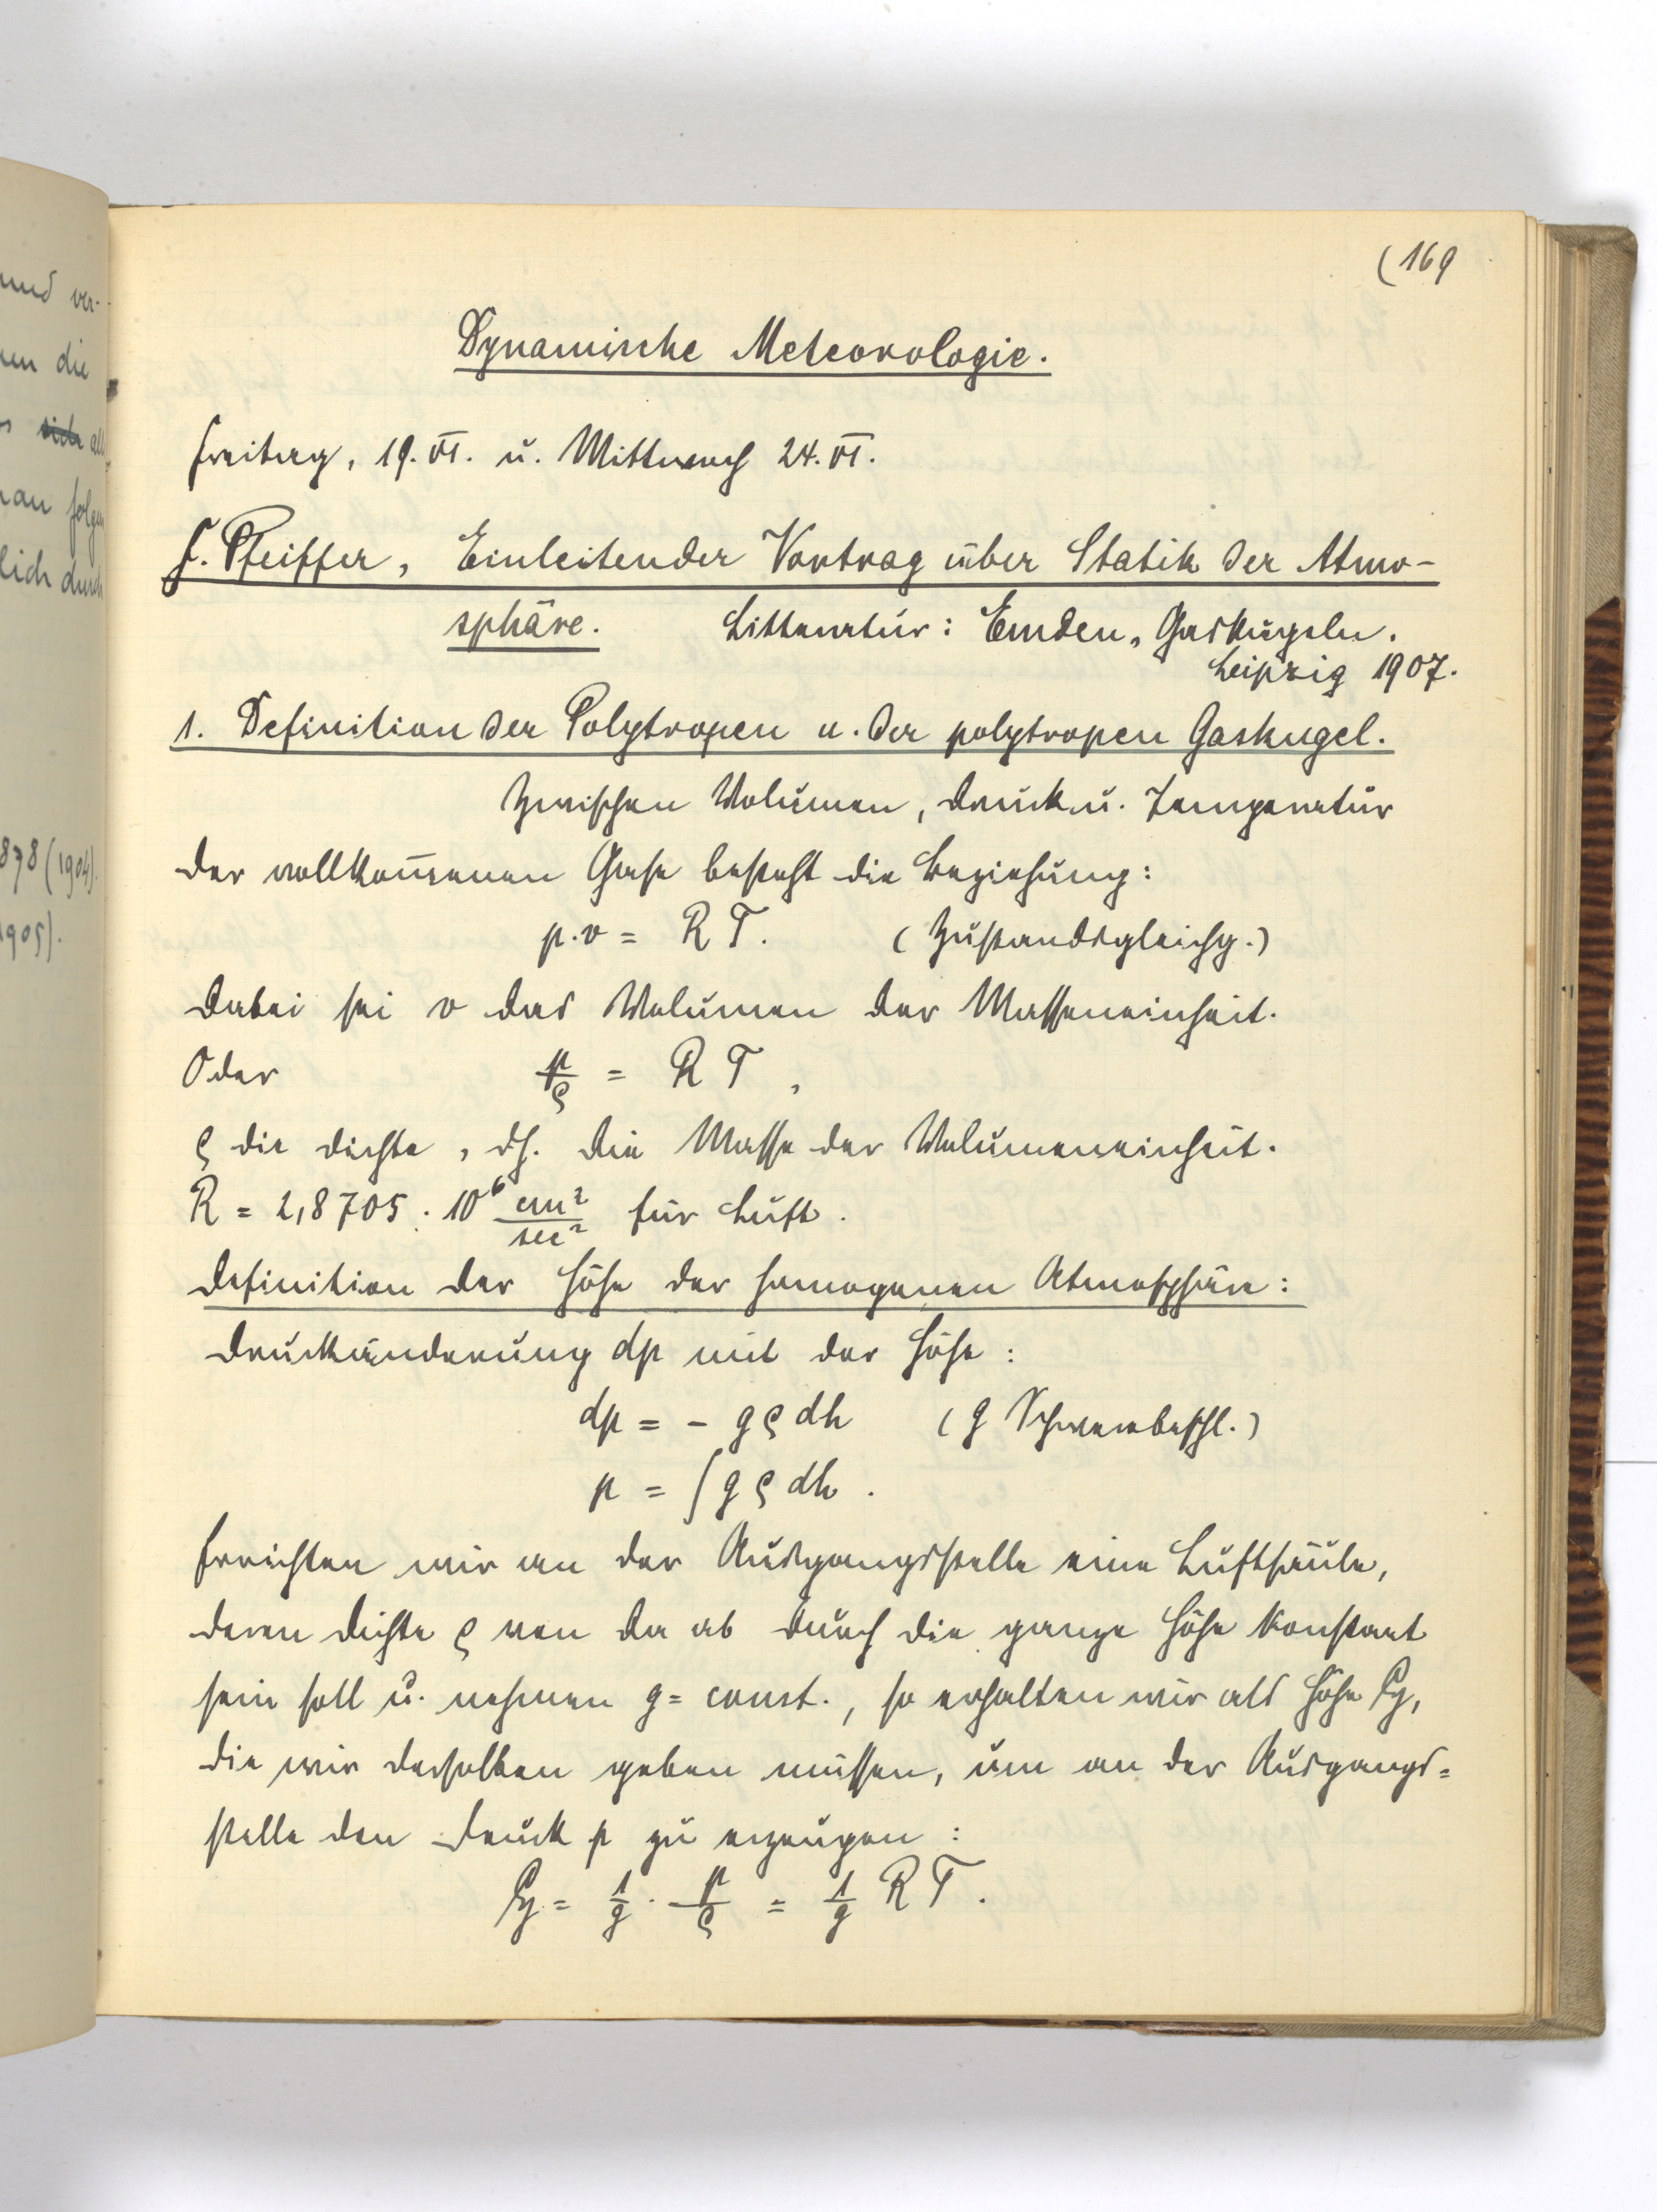 und ver-
en die
sich all
an folgen
lich durch
878 (1904).
1905).
(169
Dynamische Meteorologie.
Freitag, 19. VI. u. Mittwoch 24. VI.
F. Pfeiffer, Einleitender Vortrag über Statik der Atmo-
sphäre. Litteratur: Emden, Gaskugeln.
Leipzig 1907.
1. Definition der Polytropen u. der polytropen Gaskugel.
Zwischen Volumen, Druck u. Temperatur
der vollkom̅enen Gase besteht die Beziehung:
p.v = R T. (Zustandsgleichg.)
Dabei sei v das Volumen der Masseneinheit.
Oder p/ϱ = R T,
ϱ die Dichte, dh. die Masse der Volumeneinheit.
R = 2,8705 . 10⁶ cm²/sec² für Luft.
Definition der Höhe der homogenen Atmosphäre:
Druckänderung dp mit der Höhe:
dp = - gϱ dh (g Schwerebeschl.)
p = ∫ g ϱ dh.
Errichten wir an der Ausgangsstelle eine Luftsäule,
deren Dichte ϱ von da ab durch die ganze Höhe konstant
sein soll u. nehmen g = const., so erhalten wir als Höhe 𝔥,
die wir derselben geben müssen, um an der Ausgangs=
stelle den Druck p zu erzeugen:
𝔥 = 1/g . p/ϱ = 1/g R T.